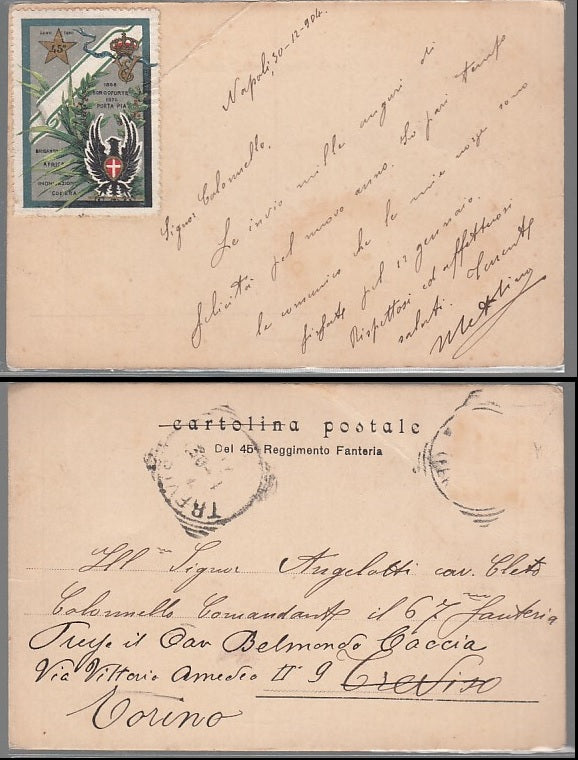 45°
1866
BORGOFORTE
1870
PORTA PIA
AFRICA
Napoli, 30-12-904.
Signor Colonnello,
Le invio mille auguri di
felicità pel nuovo anno. Io pari tempo
le comunico che le mie nozze sono
fissate pel 12 gennaio.
Rispettosi ed affettuosi
saluti. Tenente
cartolina postale
Del 45° Reggimento Fanteria
TREVISO
Ill.mo Signor Angelotti cav. Cleto
Colonnello Comandante il 67mo fanteria
Presso il Cav Belmondo Caccia
Via Vittorio Amedeo II° 9 Treviso
Torino